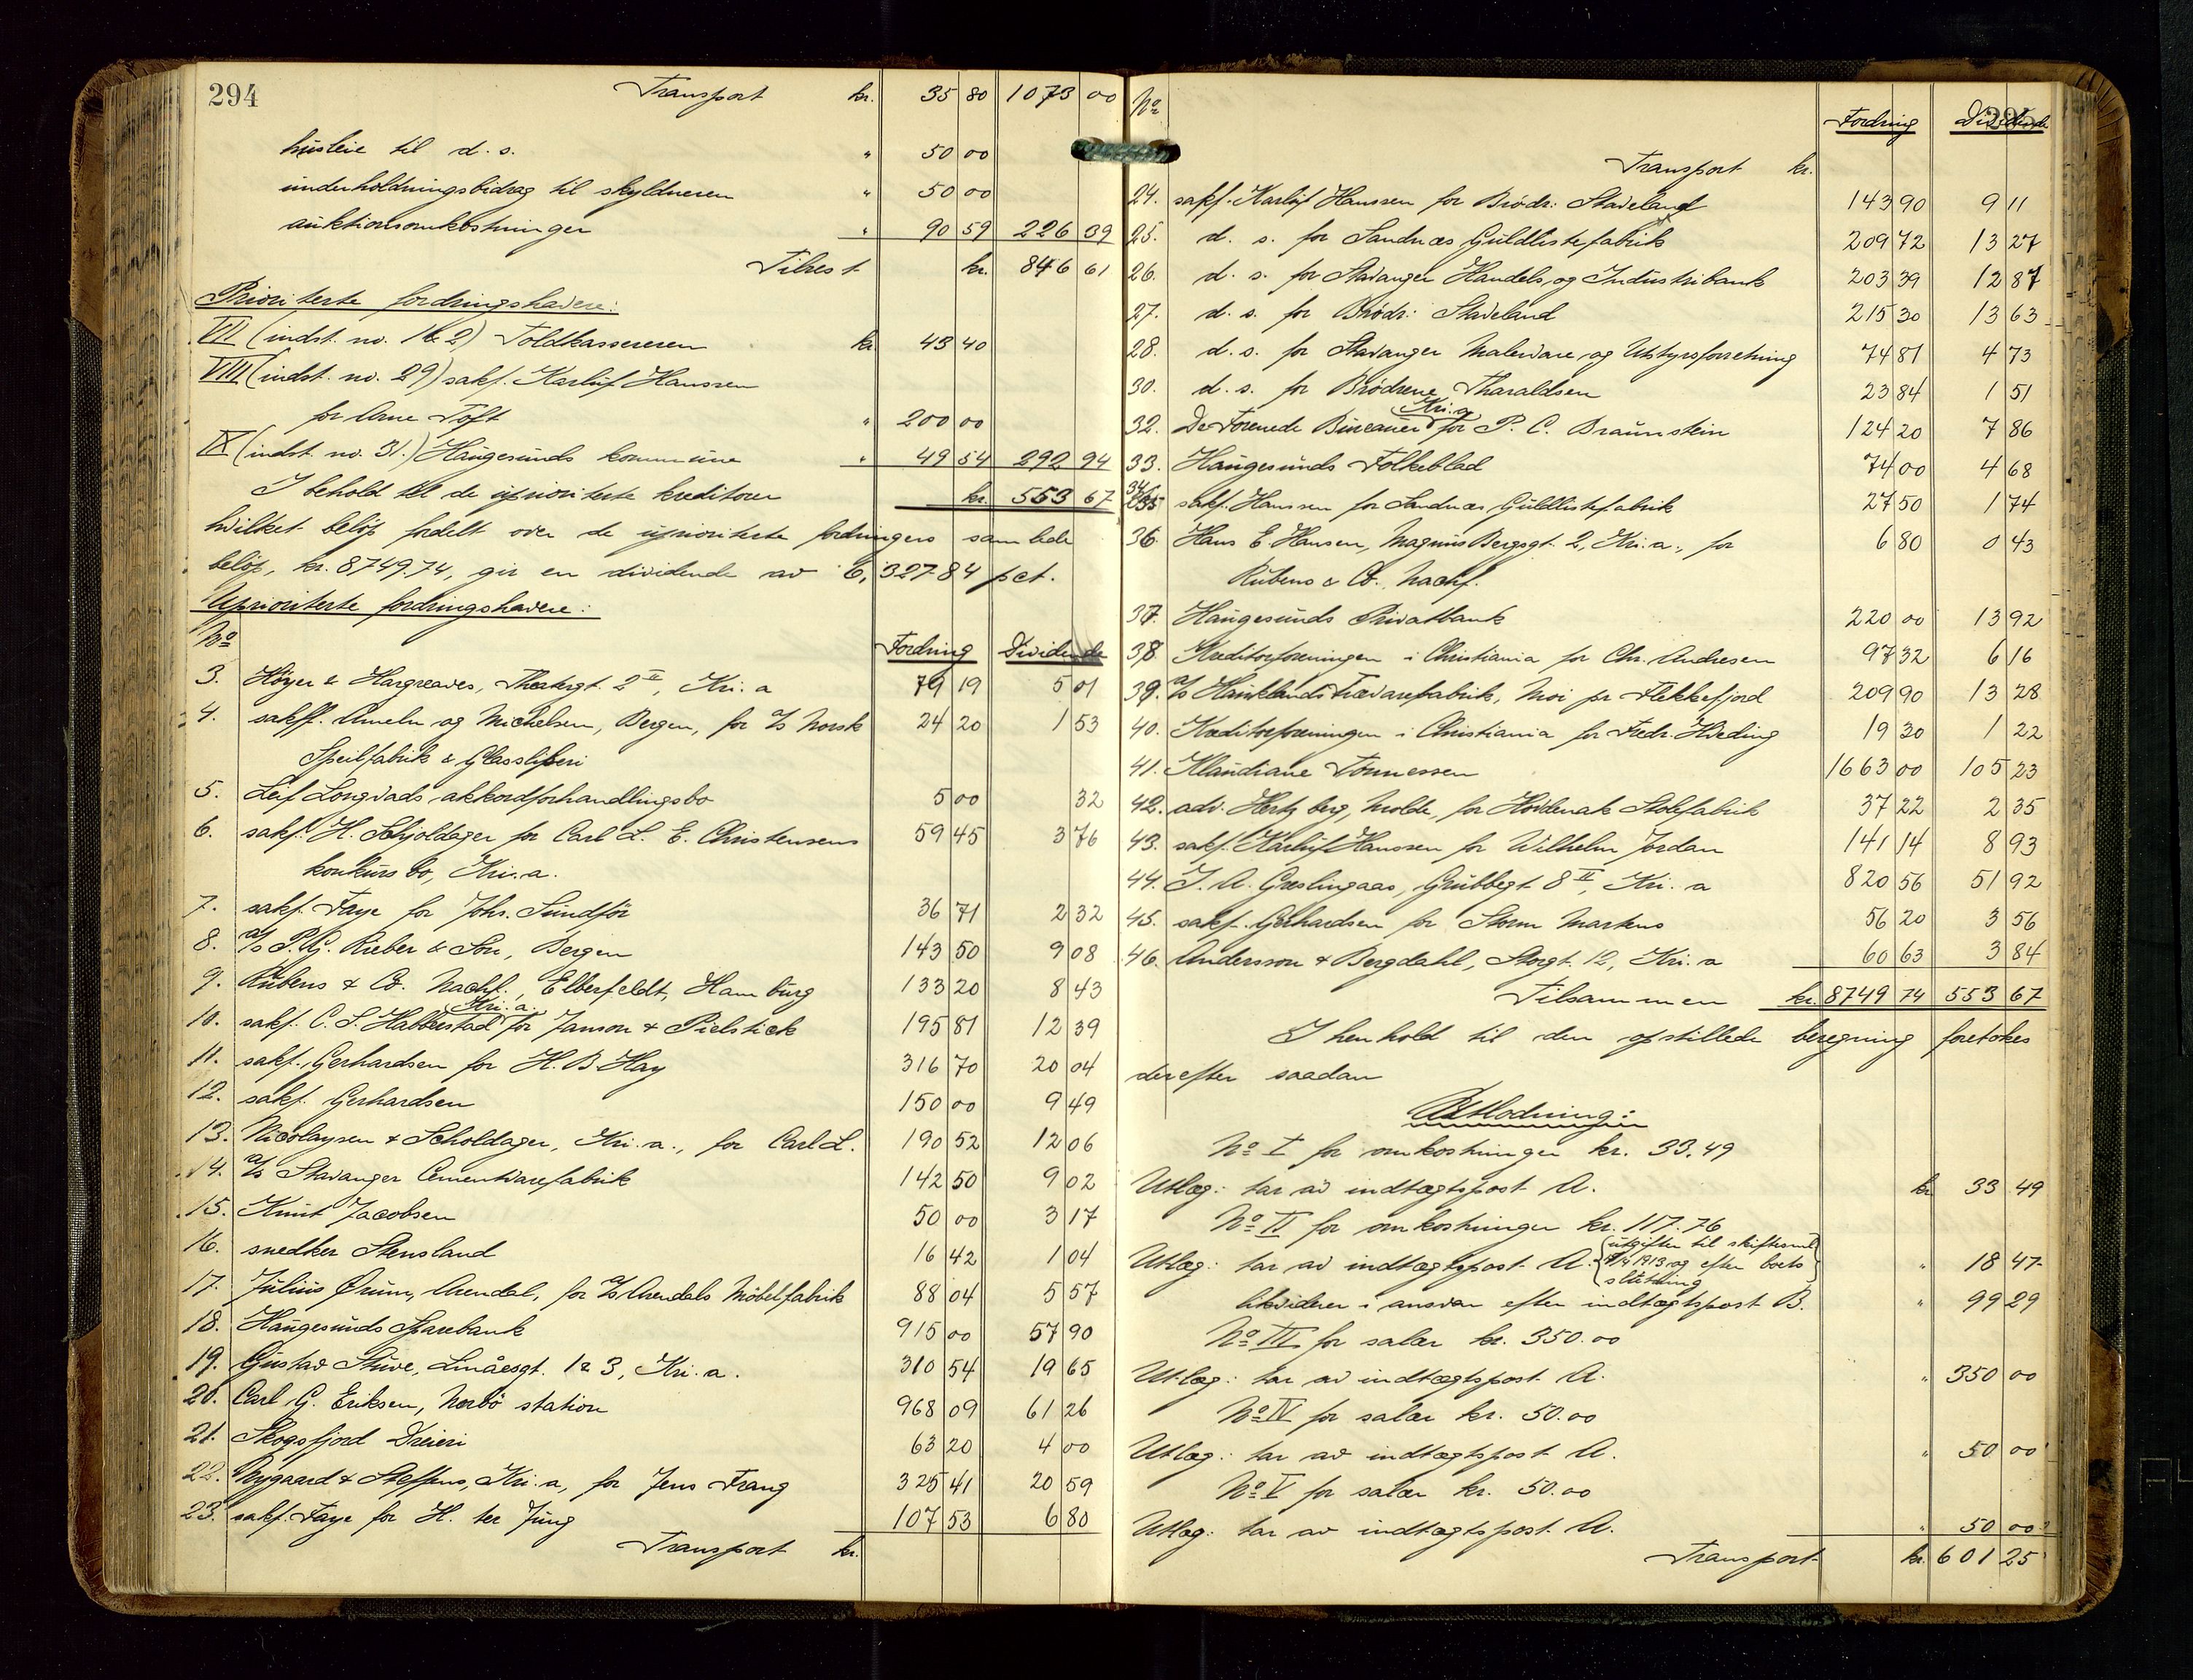 294
Transport kr. 35 80 1073 00
husleie til d. s. " 50 00
underholdningsbidrag til skyldneren " 50 00
auktionsomkostninger " 90 59 226 39
Tilrest kr. 846 61
Prioriterte fordringshavere:
VII (indst. no. 1 & 2) Toldkassereren kr. 43 40
VIII (indst. no. 29) sakf. Karluf Hanssen
for Arne Toft " 200 00
IX (indst. no. 31.) Haugesunds kommune " 49 54 292 94
I behold til de uprioriterte kreditorer kr. 553 67
hvilket beløp fordelt over de uprioriterte fordringers samlede
beløp, kr. 8749.74, gir en dividende av 6,32784 pct.
Uprioriterte fordringshavere:
No Fordring Dividende
3. Høyer & Hargreaves, Theatergt. 2 II, Kri.a 79 19 5 01
4. sakff. Ameln og Michelsen, Bergen, for A/S Norsk 24 20 1 53
Speilfabrik & Glassliperi
5. Leif Longvads akkordforhandlingsbo 5 00 32
6. sakf. H. Schjoldager for Carl L. E. Christensens 59 45 3 76
konkursbo, Kri.a.
7. sakf. Faye for Johs. Sundför 36 71 2 32
8. A/S P. G. Rieber & Søn, Bergen 143 50 9 08
9. Rubens & Co. Nachf., Elberfeldt, Hamburg 133 20 8 43
10. sakf. C. S. Halkestad Kri.a. for Janson & Pielstick 195 81 12 39
11. sakf. Gerhardsen for H. B. Hay 316 70 20 04
12. sakf. Gerhardsen 150 00 9 49
13. Nicolaysen & Scholdager, Kri.a., for Carl L. 190 52 12 06
14. A/S Stavanger Cementvarefabrik 142 50 9 02
15. Knut Jacobsen 50 00 3 17
16. snedker Stensland 16 42 1 04
17. Julius Ørum, Arendal, for A/S Arendals Möbelfabrik 88 04 5 57
18. Haugesunds Sparebank 915 00 57 90
19. Gustav Stüve, Smålesgt. 1 & 3, Kri.a. 310 54 19 65
20. Carl G. Eriksen, Nerbö station 968 09 61 26
21. Skogsfjord Dreieri 63 20 4 00
22. Nygaard & Steffens, Kri.a, for Jens Frang 325 41 20 59
23. sakf. Faye for H. ter Jung 107 53 6 80
Transport kr.
No Fordring Dividende
Transport kr.
24. sakf. Karluf Hanssen for Brödr. Staveland 143 90 9 11
25. d. s. for Sandnæs Guldlistefabrik 209 72 13 27
26. d. s. for Stavanger Handels og Industribank 203 39 12 87
27. d. s. for Brödr. Staveland 215 30 13 63
28. d. s. for Stavanger Malervare og Utstyrsforretning 74 81 4 73
30. d. s. for Brødrene Tharaldsen 23 84 1 51
32. De Forenede Bureauer Kri.a for P. C. Braunstein 124 20 7 86
33. Haugesunds Folkeblad 74 00 4 68
34/35 sakf. Hanssen for Sandnæs Guldlistefabrik 27 50 1 74
36. Hans E. Hansen, Magnus Bergsgt. 2, Kri.a., for 6 80 0 43
Rubens & Co. Nachf.
37. Haugesunds Privatbank 220 00 13 92
38. Kreditorforeningen i Christiania for Chr. Andresen 97 32 6 16
39. A/S Hauklands Trævarefabrik, Moi pr Flekkefjord 209 90 13 28
40. Kreditorforeningen i Christiania for Fredr. Hieding 19 30 1 22
41. Klaudiane Tønnessen 1663 00 105 23
42. adv. Hertzberg, Molde, for Hovdenak Stolefabrik 37 22 2 35
43. sakf. Karluf Hanssen for Wilhelm Jordan 141 14 8 93
44. J. A. Greslingaas, Grubbegt. 8 II, Kri.a 820 56 51 92
45. sakf. Gerhardsen for Storm Martens 56 20 3 56
46. Andersson & Bergdahl, Storgt. 12, Kri.a 60 63 3 84
Tilsammen kr. 8749 74 553 67
I henhold til den opstillede beregning foretokes
derefter saadan
Utlodning:
No I for omkostninger kr. 33.49
Utlæg: tar av indtægtspost A. kr. 33 49
No II for omkostninger kr. 117.76
Utlæg: tar av indtægtspost A. (utgifter til skiftesml. 1913 og efter boets slutning) " 18 47
likviderer i ansvar efter indtægtspost B. " 99 29
No III for salær kr. 350.00
Utlæg: tar av indtægtspost A. " 350 00
No IV for salær kr. 50.00
Utlæg: tar av indtægtspost A. " 50 00
No V for salær kr. 50.00
Utlæg: tar av indtægtspost A. " 50 00
Transport kr. 601 25